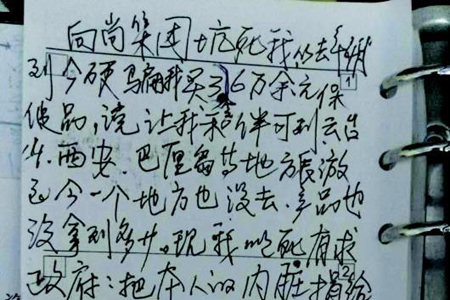 向尚集团坑死我的去年
到今硬骗我买了6万余元保
健品,说让我和老伴可到云台
山、西安、巴厘岛等地方旅游
到今一个地方也没去、产品也
没拿到多少。现我以死有求
政府:把本人的内脏捐给